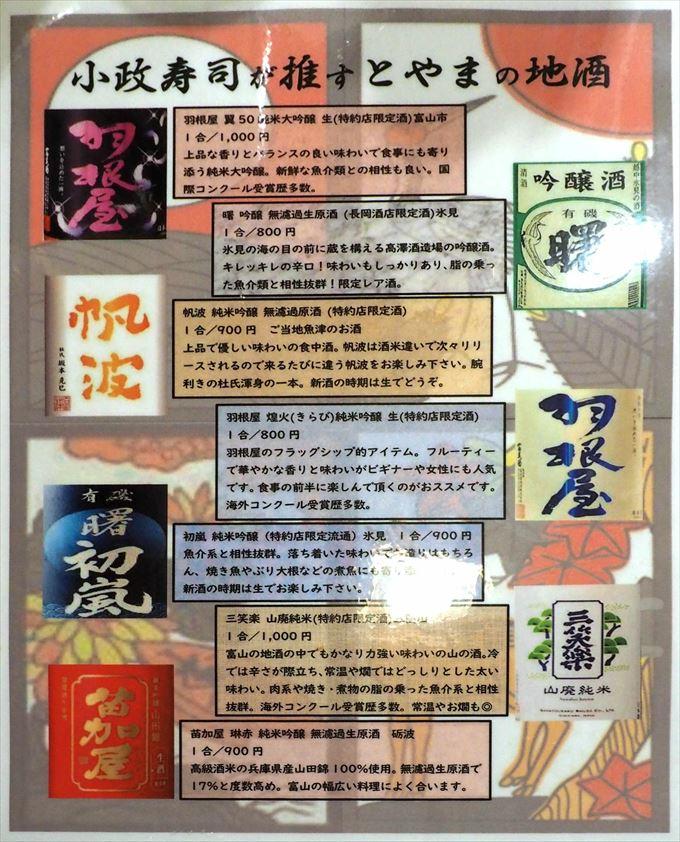 小政寿司が推すとやまの地酒
羽根屋
羽根屋 翼50 純米大吟醸 生(特約店限定酒)富山市
1合／1,000円
上品な香りとバランスの良い味わいで食事にも寄り
添う純米大吟醸。新鮮な魚介類との相性も良い。国
際コンクール受賞歴多数。
曙 吟醸 無濾過生原酒 (長岡酒店限定酒)氷見
1合／800円
氷見の海の目の前に蔵を構える高澤酒造場の吟醸酒。
キレッキレの辛口！味わいもしっかりあり、脂の乗っ
た魚介類と相性抜群！限定レア酒。
清酒
吟醸酒
有磯
曙
帆波
杜氏 坂本克己
帆波 純米吟醸 無濾過原酒 (特約店限定酒)
1合／900円 ご当地魚津のお酒
上品で優しい味わいの食中酒。帆波は酒米違いで次々リリ
ースされるので来るたびに違う帆波をお楽しみ下さい。腕
利きの杜氏渾身の一本。新酒の時期は生でどうぞ。
羽根屋 煌火(きらび)純米吟醸 生(特約店限定酒)
1合／800円
羽根屋のフラッグシップ的アイテム。フルーティー
で華やかな香りと味わいがビギナーや女性にも人気
です。食事の前半に楽しんで頂くのがおススメです。
海外コンクール受賞歴多数。
羽根屋
有磯
曙
初嵐
初嵐 純米吟醸（特約店限定流通）氷見 1合／900円
魚介系と相性抜群。落ち着いた味わいでお造りはもちろ
ん、焼き魚やぶり大根などの煮魚にも寄り
新酒の時期は生でお楽しみ下さい。
三笑楽 山廃純米(特約店限定酒)
1合／1,000円
富山の地酒の中でもかなり力強い味わいの山の酒。冷
では辛さが際立ち、常温や燗ではどっしりとした太い
味わい。肉系や焼き・煮物の脂の乗った魚介系と相性
抜群。海外コンクール受賞歴多数。常温やお燗も◎
三笑楽
山廃純米
苗加屋
生酒
苗加屋 琳赤 純米吟醸 無濾過生原酒 砺波
1合／900円
高級酒米の兵庫県産山田錦100%使用。無濾過生原酒で
17%と度数高め。富山の幅広い料理によく合います。